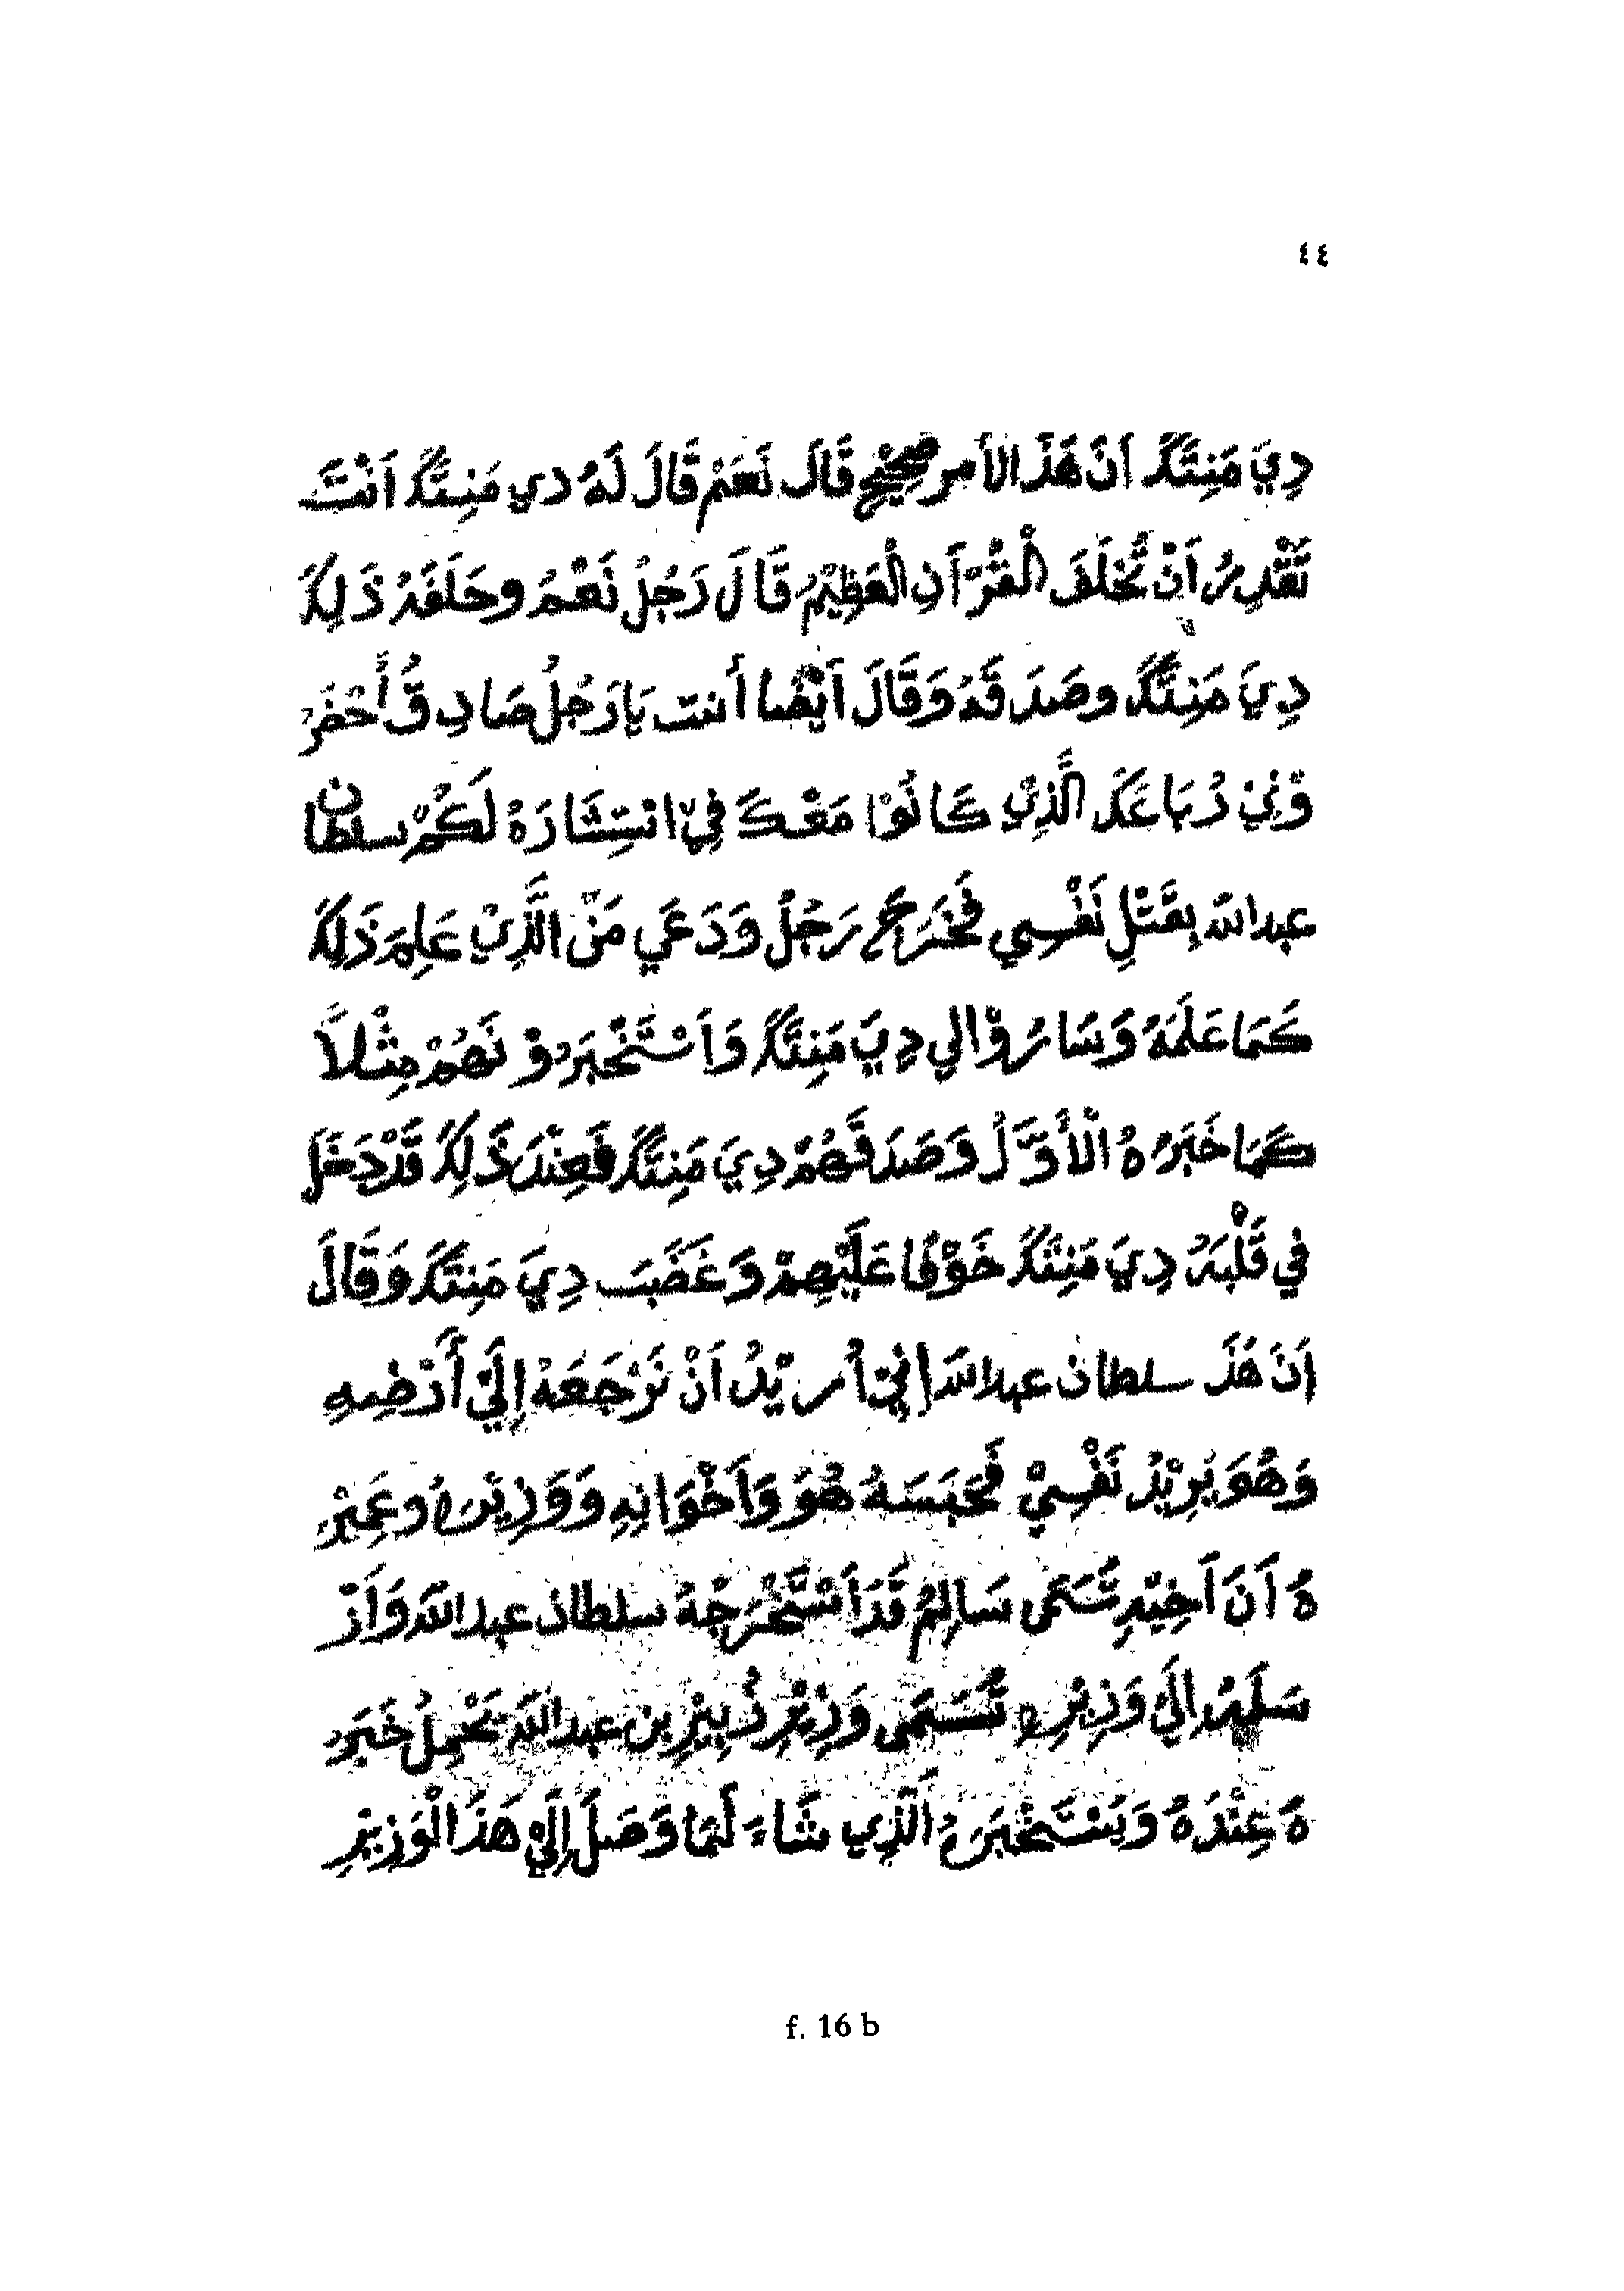 ٤٤
دِيَ مَنِتَّكَ اَنَّ هَذَ الأمر صَحِيْح قَالَ نَعَمْ قَالَ لَهُ دي مَنِتَكَ اَنْتَ
تَقْدِرُ اَنْ تُخْلَفَ الْقُرْآنِ الْعَظِيْمُ قَالَ رَجُلُ نَعْمُ وحَلَفَهُ ذَلِكَ
دِيَ مَنِتَّكَ وصَدَ قَهُ وَقَالَ اَيْضًا أنت يَا رَجُلُ صَادِ قُ أُحْضَرُ
وْنِيْ رُبَاعَكَ الَّذِيْ كَا نُوْا مَعْكَ فِيْ انْتِشَارَةْ لَكُمْ سلطان
عبدالله بِقَتْلِ نَفْسِي فَخَرَجَ رَجُلُ وَدَعَي مَنْ الَّذِيْ عَلِمَ ذَلِكَ
كَمَا عَلَمَهُ وَسَارُوْالي دِيَ مَنِتَكَ وَاَسْتَخْبَرُوْ نَهُمْ مِثْلاً
كَمَا خَبَرُهُ الْأَوَّلُ وَصَدَ قَهُمْ دِيَ مَنِتَكَ فَعِنْدَ ذَلِكَ قَدْ دَخَلَ
في قَلْبَهُ دِيَ مَنِتَكَ خَوْفًا عَلَيْهِمْ وَغَضَبَ دِيَ مَنِتَكَ وَقَالَ
اَنَ هَذَ سلطان عبدالله اِنِيْ اُريْدُ اَنْ نَرْجَعَهْ اِلَيْ أَرْضِهِ
وَهُوَ يُرِيْدُ نَفْسِيْ فَحَبَسَهُ هُوَ وَاَخْوَانِهِ وَوَزِيْرَهُ وعَمِيْرُ
هُ اَنَ اَخِيْهِ تُسَمَى سَالِمُ قَدَاَسْتَخْرَجُهُ سلطان عبدالله وَاَرْ
سَلَهُ اِلَيْ وَزِيْرِهِ تُسَمَى وَزِيْرِ زُبِيْرِ بن عبدالله يَحْمِلُ خَبَرُ
هُ عِنْدَهُ وَيَسْتَخْبَرَهُ الَّذِي شَاءَ لَمَا وَصَلَ اِلَيْ هَذَا الْوَزِيْرِ
f. 16 b